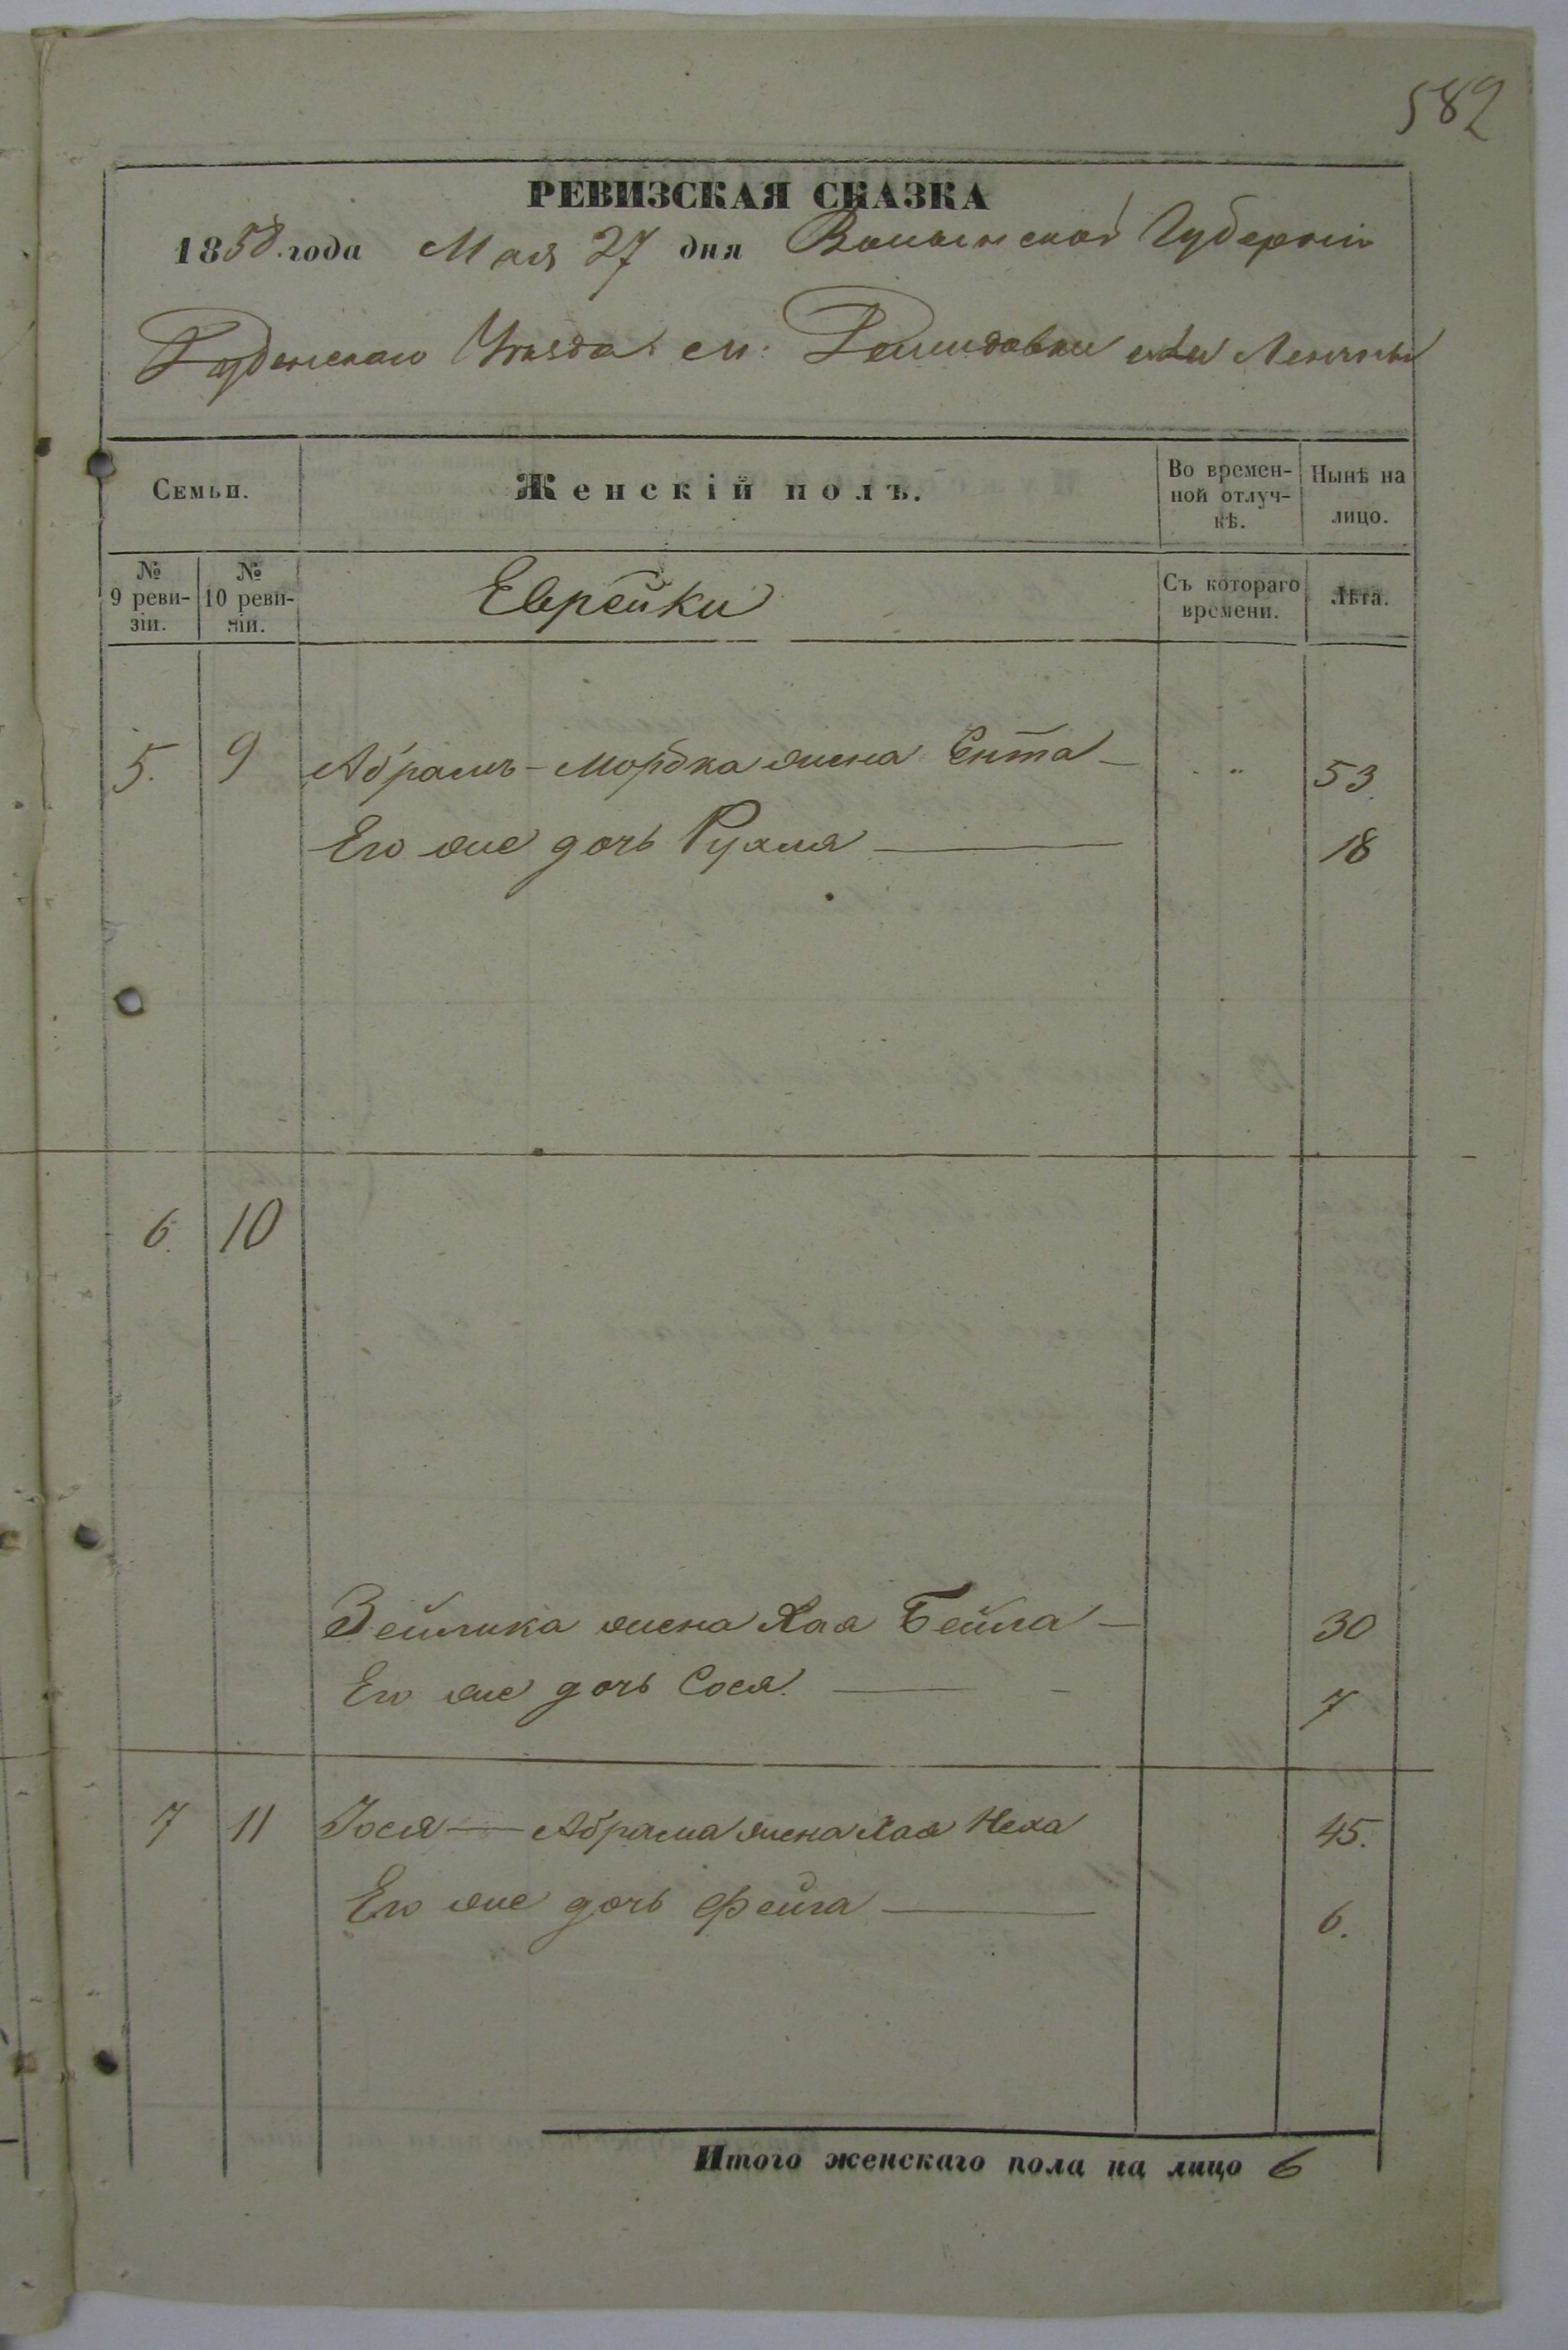 582
РЕВИЗСКАЯ СКАЗКА
1858. года Мая 27 дня Волынской Губерніи
Уѣзда. или
Семьи.
Женскій полъ.
Во времен-
ной отлуч-
кѣ.
Нынѣ на
лицо.
№
9 реви-
зіи.
№
10 реви-
зіи.
Еврейки
Съ котораго
времени.
Лѣта.
5. 9 Абрамъ - Мордка жена Ента — 53.
Его же дочь Рухля — 18
6. 10
Зейлика жена Хая Бейла — 30
Его же дочь Сося. — 7
7 11 Іося — Абрама жена Хая Неха 45.
Его же дочь Фейга — 6.
Итого женскаго пола на лицо 6